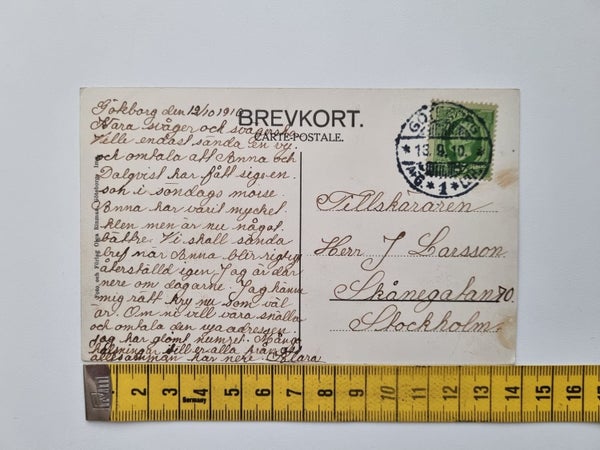 Göteborg den 12/10 1910
BREVKORT.
CARTE POSTALE.
Kära svåger och svägerska
Ville endast sända en vy
och omtala att Anna och
Dalqvist har fått sig en
son i söndags morse.
Anna har varit mycket
klen men är nu något
bättre. Vi skall sända
bref när Anna blir riktig
återställd igen Jag är där
nere om dagarne. Jag känner
mig rätt kry nu som väl
är. Om ni vill vara snälla
och omtala den nya adressen.
Jag har glömt numret. Många
hälsningar till er alla från oss
allesamman här nere. Klara
Foto och Förlag Olga Göteborg
GÖTEBORG
13.9.10
1
Tillskäraren
Herr J Larsson
Skånegatan 70.
Stockholm.
1 2 3 4 5 6 7 8 9 10 11 12 13 14 15 16
Germany